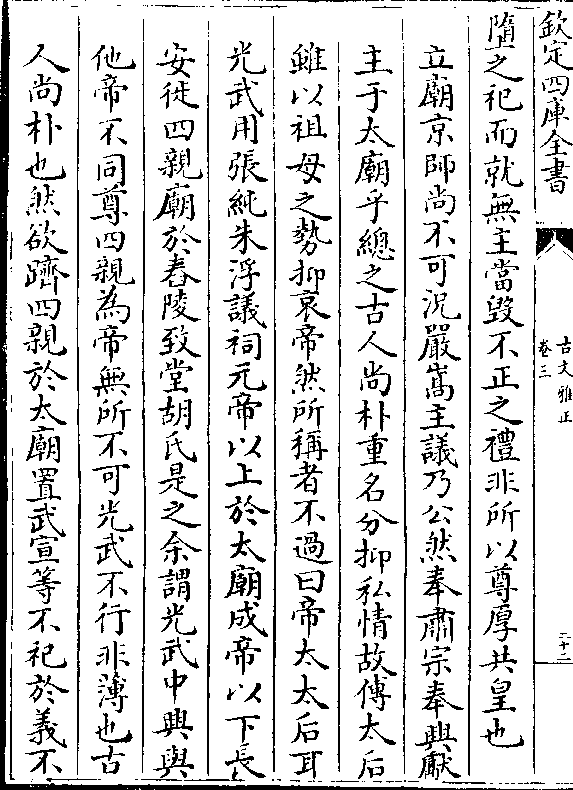 欽定四庫全書
古文雅正
卷三
二十二
墮之祀而就無主當毀不正之禮非所以尊厚共皇也
立廟京師尚不可況嚴嵩主議乃公然奉肅宗奉興獻
主于太廟乎總之古人尚朴重名分抑私情故傅太后
雖以祖母之勢抑哀帝然所稱者不過曰帝太太后耳
光武用張純朱浮議祠元帝以上於太廟成帝以下長
安徙四親廟於舂陵致堂胡氏是之余謂光武中興與
他帝不同尊四親為帝無所不可光武不行非薄也古
人尚朴也然欲躋四親於太廟置武宣等不祀於義不